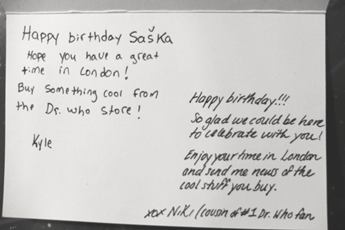 Happy birthday Saška
Hope you have a great
time in London!
Buy something cool from
the Dr. who store!
Kyle
Happy birthday!!!
So glad we could be here
to celebrate with you!
Enjoy your time in London
and send me news of the
cool stuff you buy.
xox Niki (cousin of #1 Dr. Who fan